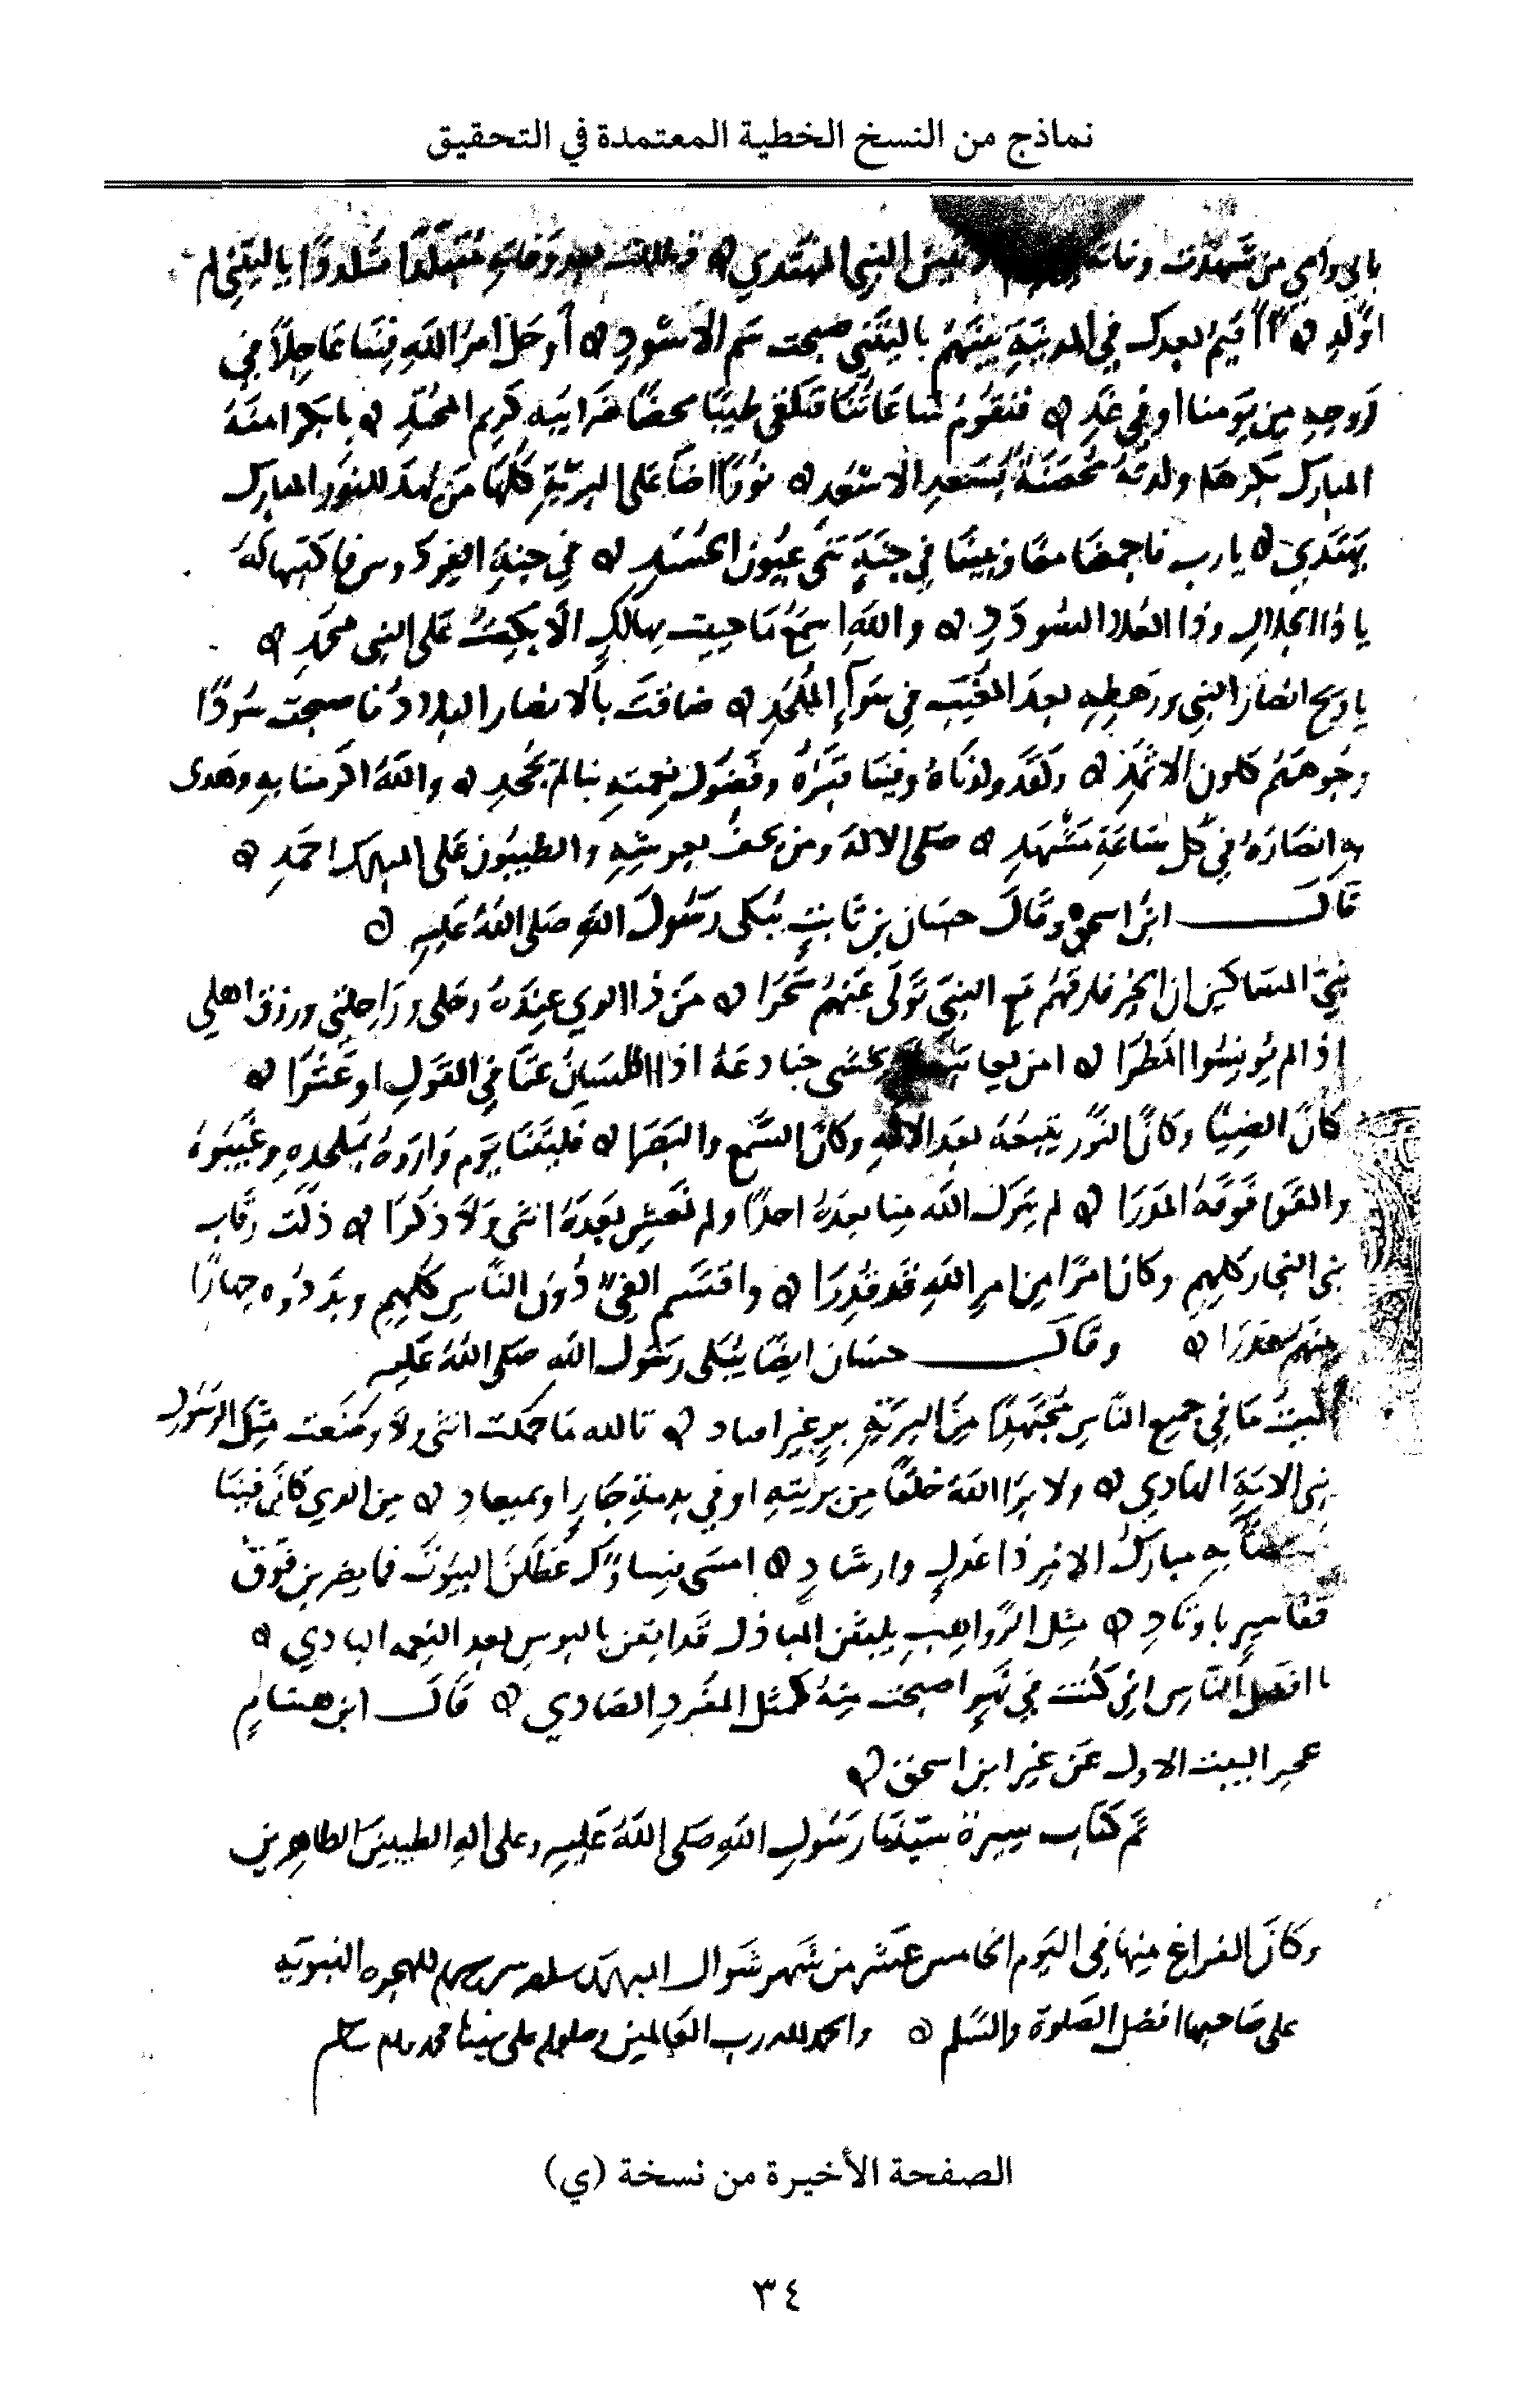 نماذج من النسخ الخطية المعتمدة في التحقيق
بابي وامي من شهدت وفاته النبي المهتدي فظللت بعد وفاته متبلدا متلددا ياليتني لم
اولد أأقيم بعدك في المدينة بينهم ياليتني صبحت سم الاسود أو حل امر الله فينا عاجلا في
روحة من يومنا او في غد فتقوم ساعاتنا فتلقى طيبا محضا ضرايبه كريم المحتد يا بكر امنة
المبارك بكرها ولدته محصنة بسعد الاسعد نورا اضا على البرية كلها من يهد للنور المبارك
يهتدي يارب فاجمعنا معا ونبينا في جنة تثنى عيون الحسد في جنة الفردوس فاكتبها له
يا ذا الجلال وذا العلا والسودد والله اسمع ما حييت بهالك الا بكيت على النبي محمد
يا ويح انصار النبي ورهطه بعد المغيب في سواء الملحد ضاقت بالانصار البلاد فاصبحت سودا
وجوههم كلون الاثمد ولقد ولدناه وفينا قبره وفضول نعمته بنا لم يجحد والله اكرمنا به وهدى
به انصاره في كل ساعة مشهد صلى الاله ومن يحف بعرشه والطيبون على المبارك احمد
قال ابن اسحق وقال حسان بن ثابت يبكى رسول الله صلى الله عليه
نبي المساكين ان الخير فارقهم مع النبي تولى عنهم سحرا من ذا الذي عنده رحلي وراحلتي ورزق اهلي
اذا لم يونسوا المطرا ام من يخشى جنادعه اذا اللسان عتا في القول او عثرا
كان الضيا وكان النور يتبعه بعد الاله وكان السمع والبصرا فليتنا يوم واروه بملحده وغيبوه
والقوا فوقه المدرا لم يترك الله منا بعده احدا ولم يعش بعده انثى ولا ذكرا ذلت رقاب
بني النجار كلهم وكان امرا من امر الله قد قدرا واقتسم الفيء دون الناس كلهم وبددوه جهارا
بينهم هدرا وقال حسان ايضا يبكى رسول الله صلى الله عليه
آليت ما في جميع الناس مجتهدا مني الية بر غير افناد تالله ما حملت انثى ولا وضعت مثل الرسول
نبي الامة الهادي ولا برا الله خلقا من بريته اوفى بذمة جار او بميعاد من الذي كان فينا
يستضا به مبارك الامر ذا عدل وارشاد امسى نساوك عطلن البيوت فما يضربن فوق
قفا ستر باوتاد مثل الرواهب يلبسن المباذل قد ايقن بالبوس بعد النعمه البادي
يا افضل الناس اني كنت في نهر اصبحت منه كمثل المفرد الصادي قال ابن هشام
عجز البيت الاول عن غير ابن اسحق
تم كتاب سيرة سيدنا رسول الله صلى الله عليه وعلى اله الطيبين الطاهرين
وكان الفراغ منها في اليوم الخامس عشر من شهر شوال المبارك للهجره النبويه
على صاحبها افضل الصلوة والسلم والحمد لله رب العالمين وصلواته على سيدنا محمد
الصفحة الأخيرة من نسخة (ي)
٣٤